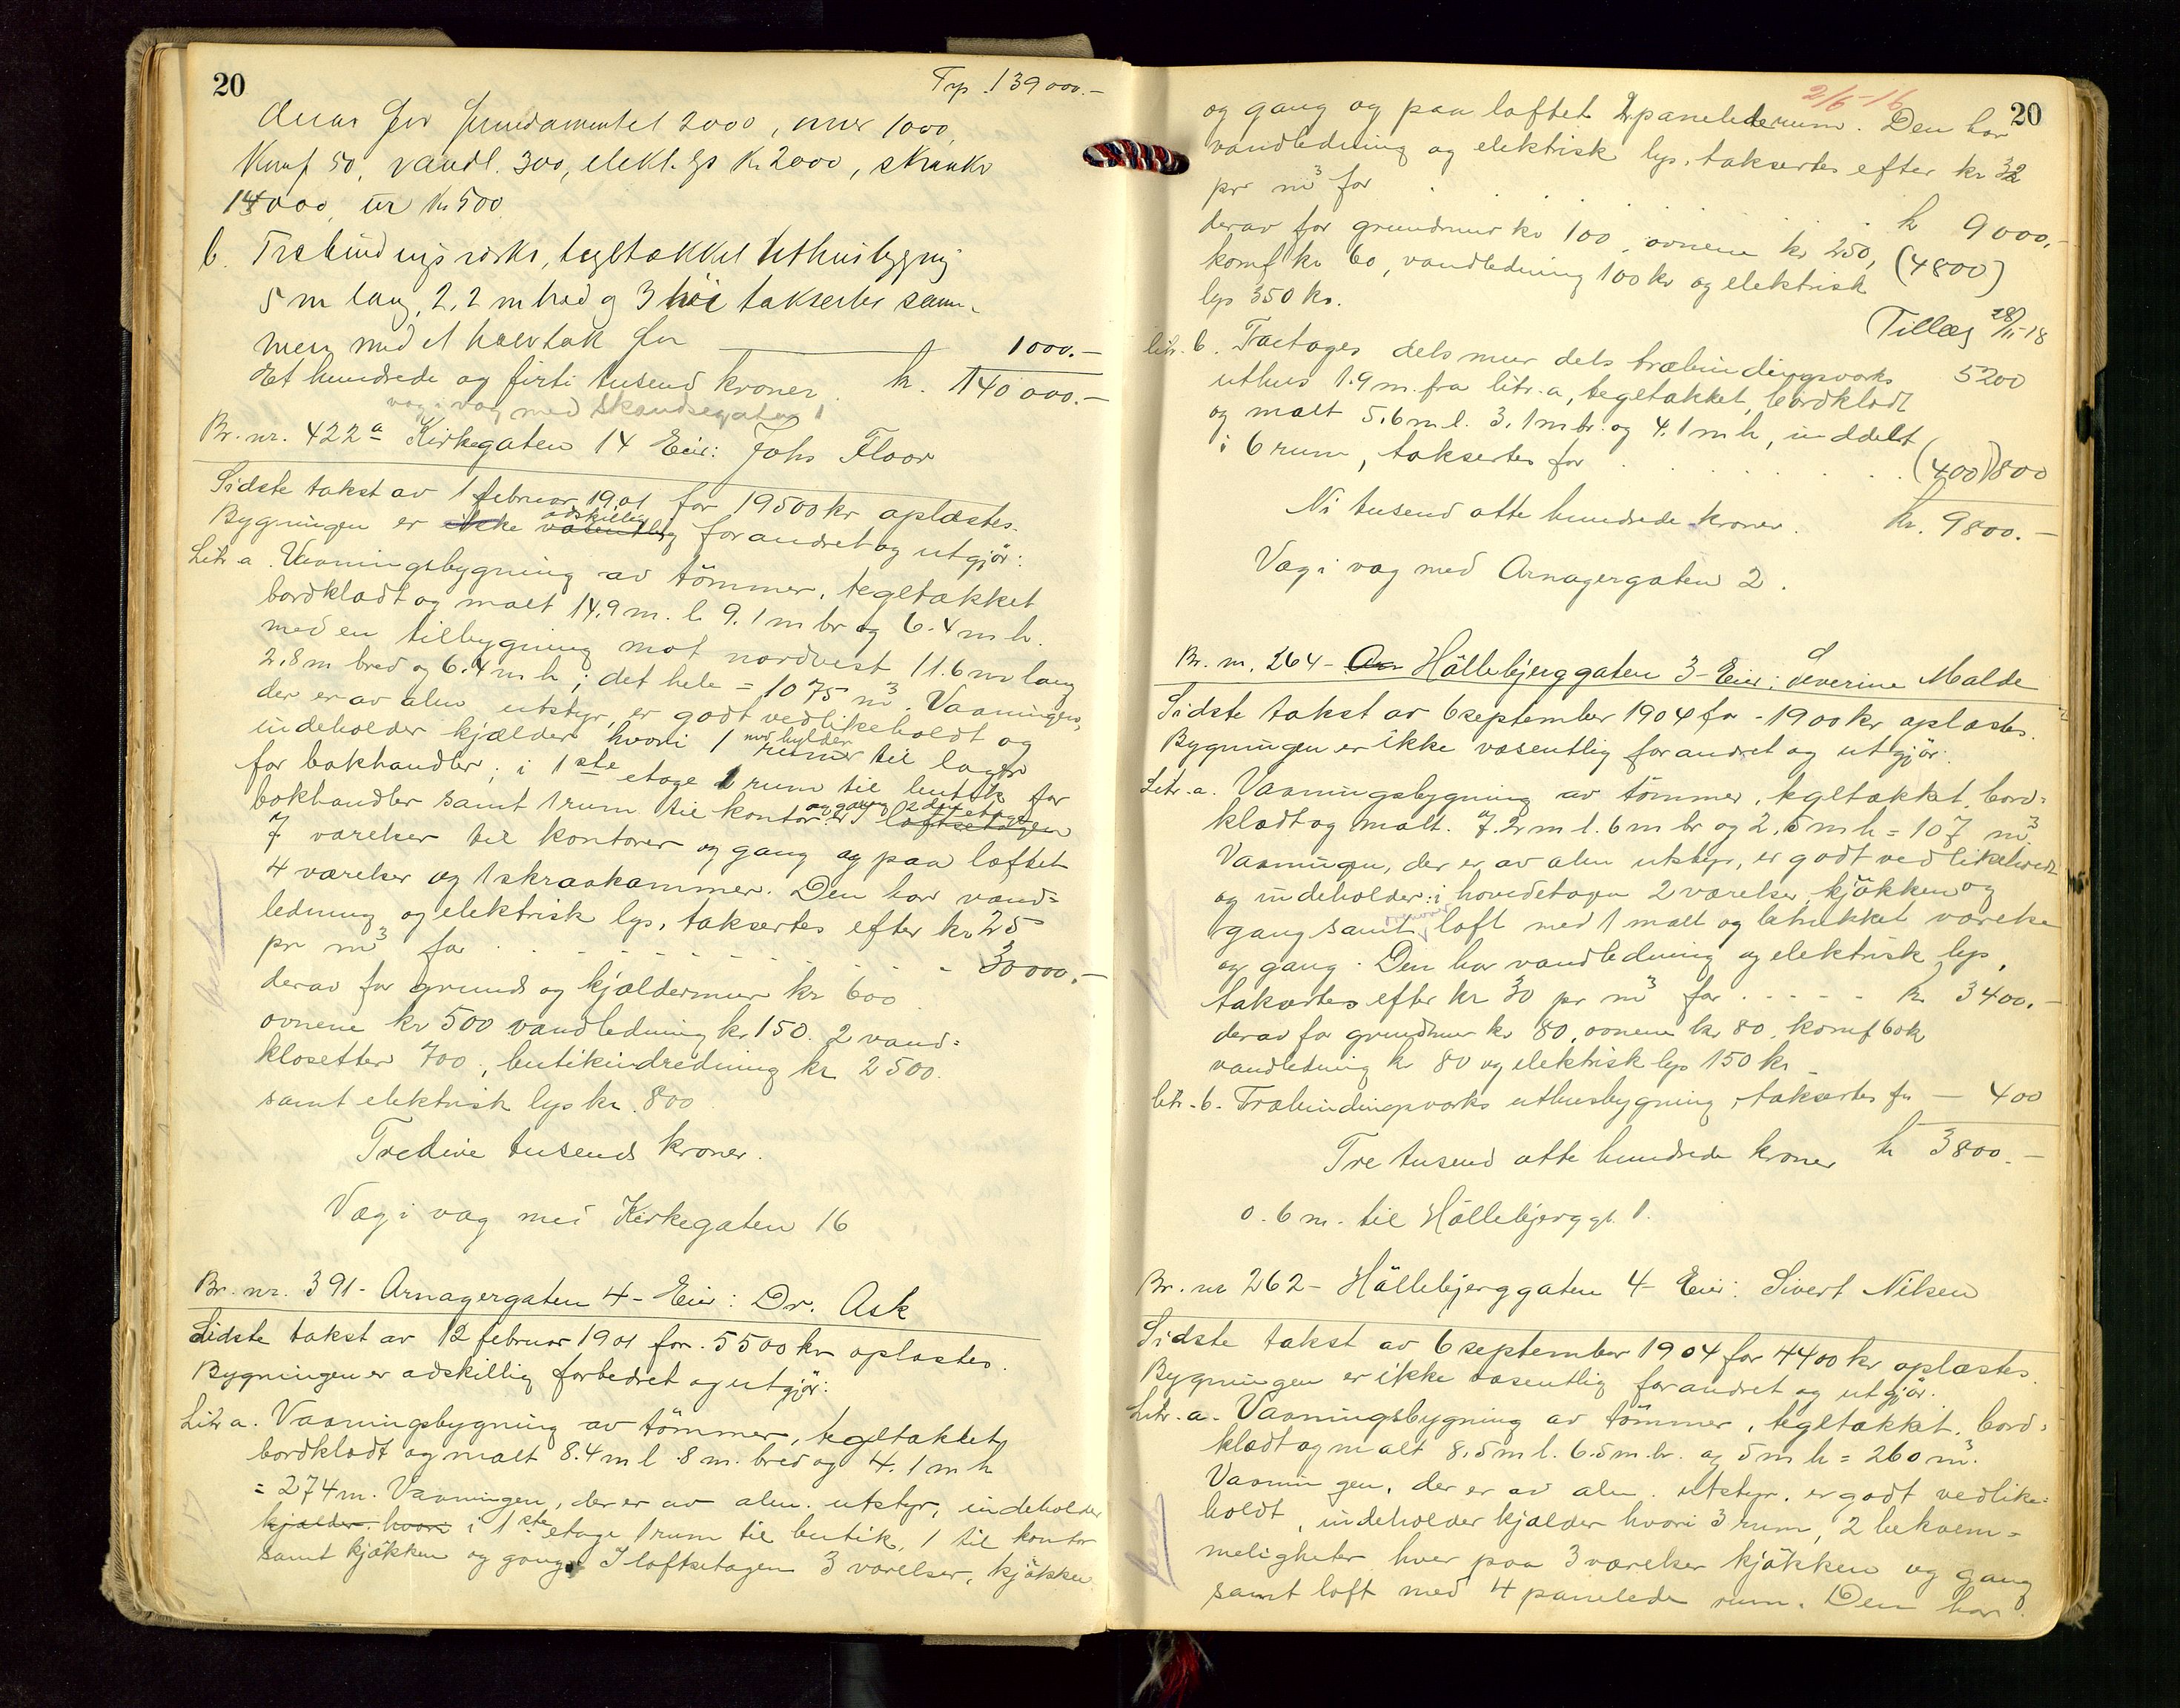 20
Trp. 139000.-
derav for fundamentet 2000, mur 1000,
Komf 50, vandl. 300, elekt. lys Kr 2000, skranke
14000, ur Kr 500
b. Træbindingsværks, tegltækket Uthusbygning
5 m lang, 2,2 m bred og 3 höi taksertes sam-
men med et halvtak for 1000.-
Et hundrede og firti tusend kroner. kr. 140000.-
væg i væg med Skandsegaten 1
Br. nr. 422a Kirkegaten 14 Eier: Johs Floor
Sidste takst av 1 februar 1901 for 19500 kr oplæstes.
Bygningen er ikke væsentlig adskillig forandret og utgjör:
Litr a. Vaaningsbygning av tömmer, tegltækket
bordklædt og malt 14.9 m. l. 9.1 m br og 6.4 m h.
med en tilbygning mot nordvest 11.6 m lang
2.8 m bred og 6.4 m h; det hele = 1075 m³. Vaaningen,
der er av alm utstyr, er godt vedlikeholdt og
indeholder kjælder hvori 1 rum med hylder til lager
for bokhandler; i 1ste etage 1 rum til butik for
bokhandler samt 1 rum til kontor og gang. I loftsetagen 2den etage
7 værelser til kontorer og gang og paa loftet
4 værelser og 1 skraakammer. Den har vand=
ledning og elektrisk lys, taksertes efter kr 25
pr m³ for 30000.-
derav for grund og kjældermur kr 600
ovnene kr 500 vandledning kr 150. 2 vand=
klosetter 700, butikindredning kr 2500.
samt elektrisk lys kr. 800
Tredive tusend kroner.
Væg i væg med Kirkegaten 16
Br. nr. 391 - Arnagergaten 4 - Eier: Dr. Ask
Sidste takst av 12 februar 1901 for 5500 kr oplæstes.
Bygningen er adskillig forbedret og utgjör:
Litr a. Vaaningsbygning av tömmer, tegltækket,
bordklædt og malt 8.4 m l 8 m. bred og 4.1 m h
= 274 m. Vaaningen, der er av alm. utstyr, indeholder
kjælder hvori i 1ste etage 1 rum til butik, 1 til kontor
samt kjökken og gang. I loftsetagen 3 værelser, kjökken
2/6-16
20
og gang og paa loftet 2 panelede rum. Den har
vandledning og elektrisk lys, taksertes efter kr 32
pr m³ for kr 9000.-
derav for grundmur kr 100, ovnene kr 250, (4800)
komf kr 60, vandledning 100 kr og elektrisk
lys 350 kr.
Tillæg 28/11-18
5200
litr. b. Toetages dels mur dels træbindingsværks
uthus 1.9 m. fra litr. a, tegltækket, bordklædt
og malt 5.6 m l. 3.1 m br. og 4.1 m h, inddelt
i 6 rum, taksertes for (400) 800
Ni tusend otte hundrede kroner. kr. 9800.-
Væg i væg med Arnagergaten 2.
Br. nr. 264 - Ar Hållebjerggaten 3 - Eier: Severine Malde
Sidste takst av 6 september 1904 for 1900 kr oplæstes.
Bygningen er ikke væsentlig forandret og utgjör:
Litr. a. Vaaningsbygning av tömmer, tegltækket, bord=
klædt og malt. 7.2 m l. 6 m br og 2.5 m h = 107 m³
Vaaningen, der er av alm utstyr, er godt vedlikeholdt
og indeholder: i hovedetagen 2 værelser, kjökken og
gang samt loft med 1 malt og betrukket værelse
og gang. Den har vandledning og elektrisk lys,
taksertes efter kr 30 pr m³ for kr 3400.-
derav for grundmur kr 80, ovnene kr 80, komf 60 kr
vandledning kr 80 og elektrisk lys 150 kr
litr. b. Træbindingsværks uthusbygning, taksertes for - 400
Tre tusend otte hundrede kroner kr 3800.-
0.6 m. til Hållebjerggt. 1.
Br. nr 262 - Hållebjerggaten 4 - Eier: Sivert Nilsen
Sidste takst av 6 september 1904 for 4400 kr oplæstes.
Bygningen er ikke væsentlig forandret og utgjör:
Litr. a. Vaaningsbygning av tömmer, tegltækket, bord=
klædt og malt 8,5 m l. 6.5 m. br. og 5 m h = 260 m³.
Vaaningen, der er av alm. utstyr, er godt vedlike=
holdt, indeholder kjælder hvori 3 rum, 2 bekvem=
meligheter hver paa 3 værelser kjökken og gang
samt loft med 4 panelede rum. Den har